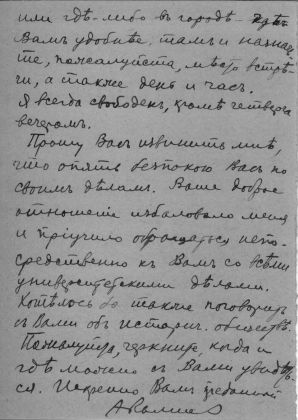 или гдѣ-либо въ городѣ - гдѣ
Вамъ удобнѣе, тамъ и назнач
те, пожалуйста, мѣсто встрѣ-
чи, а также день и часъ.
Я всегда свободенъ, кромѣ четверга
вечеромъ.
Прошу Васъ извинить мнѣ,
что опять безпокою Васъ по
своимъ дѣламъ. Ваше доброе
отношеніе избаловало меня
и пріучило обращаться непо-
средственно къ Вамъ со всѣми
университетскими дѣлами.
Хотѣлось бы также поговорить
съ Вами объ историч. обществѣ.
Пожалуйста, черкните, когда и
гдѣ можно съ Вами увидѣть
ся. Искренно Вамъ преданный